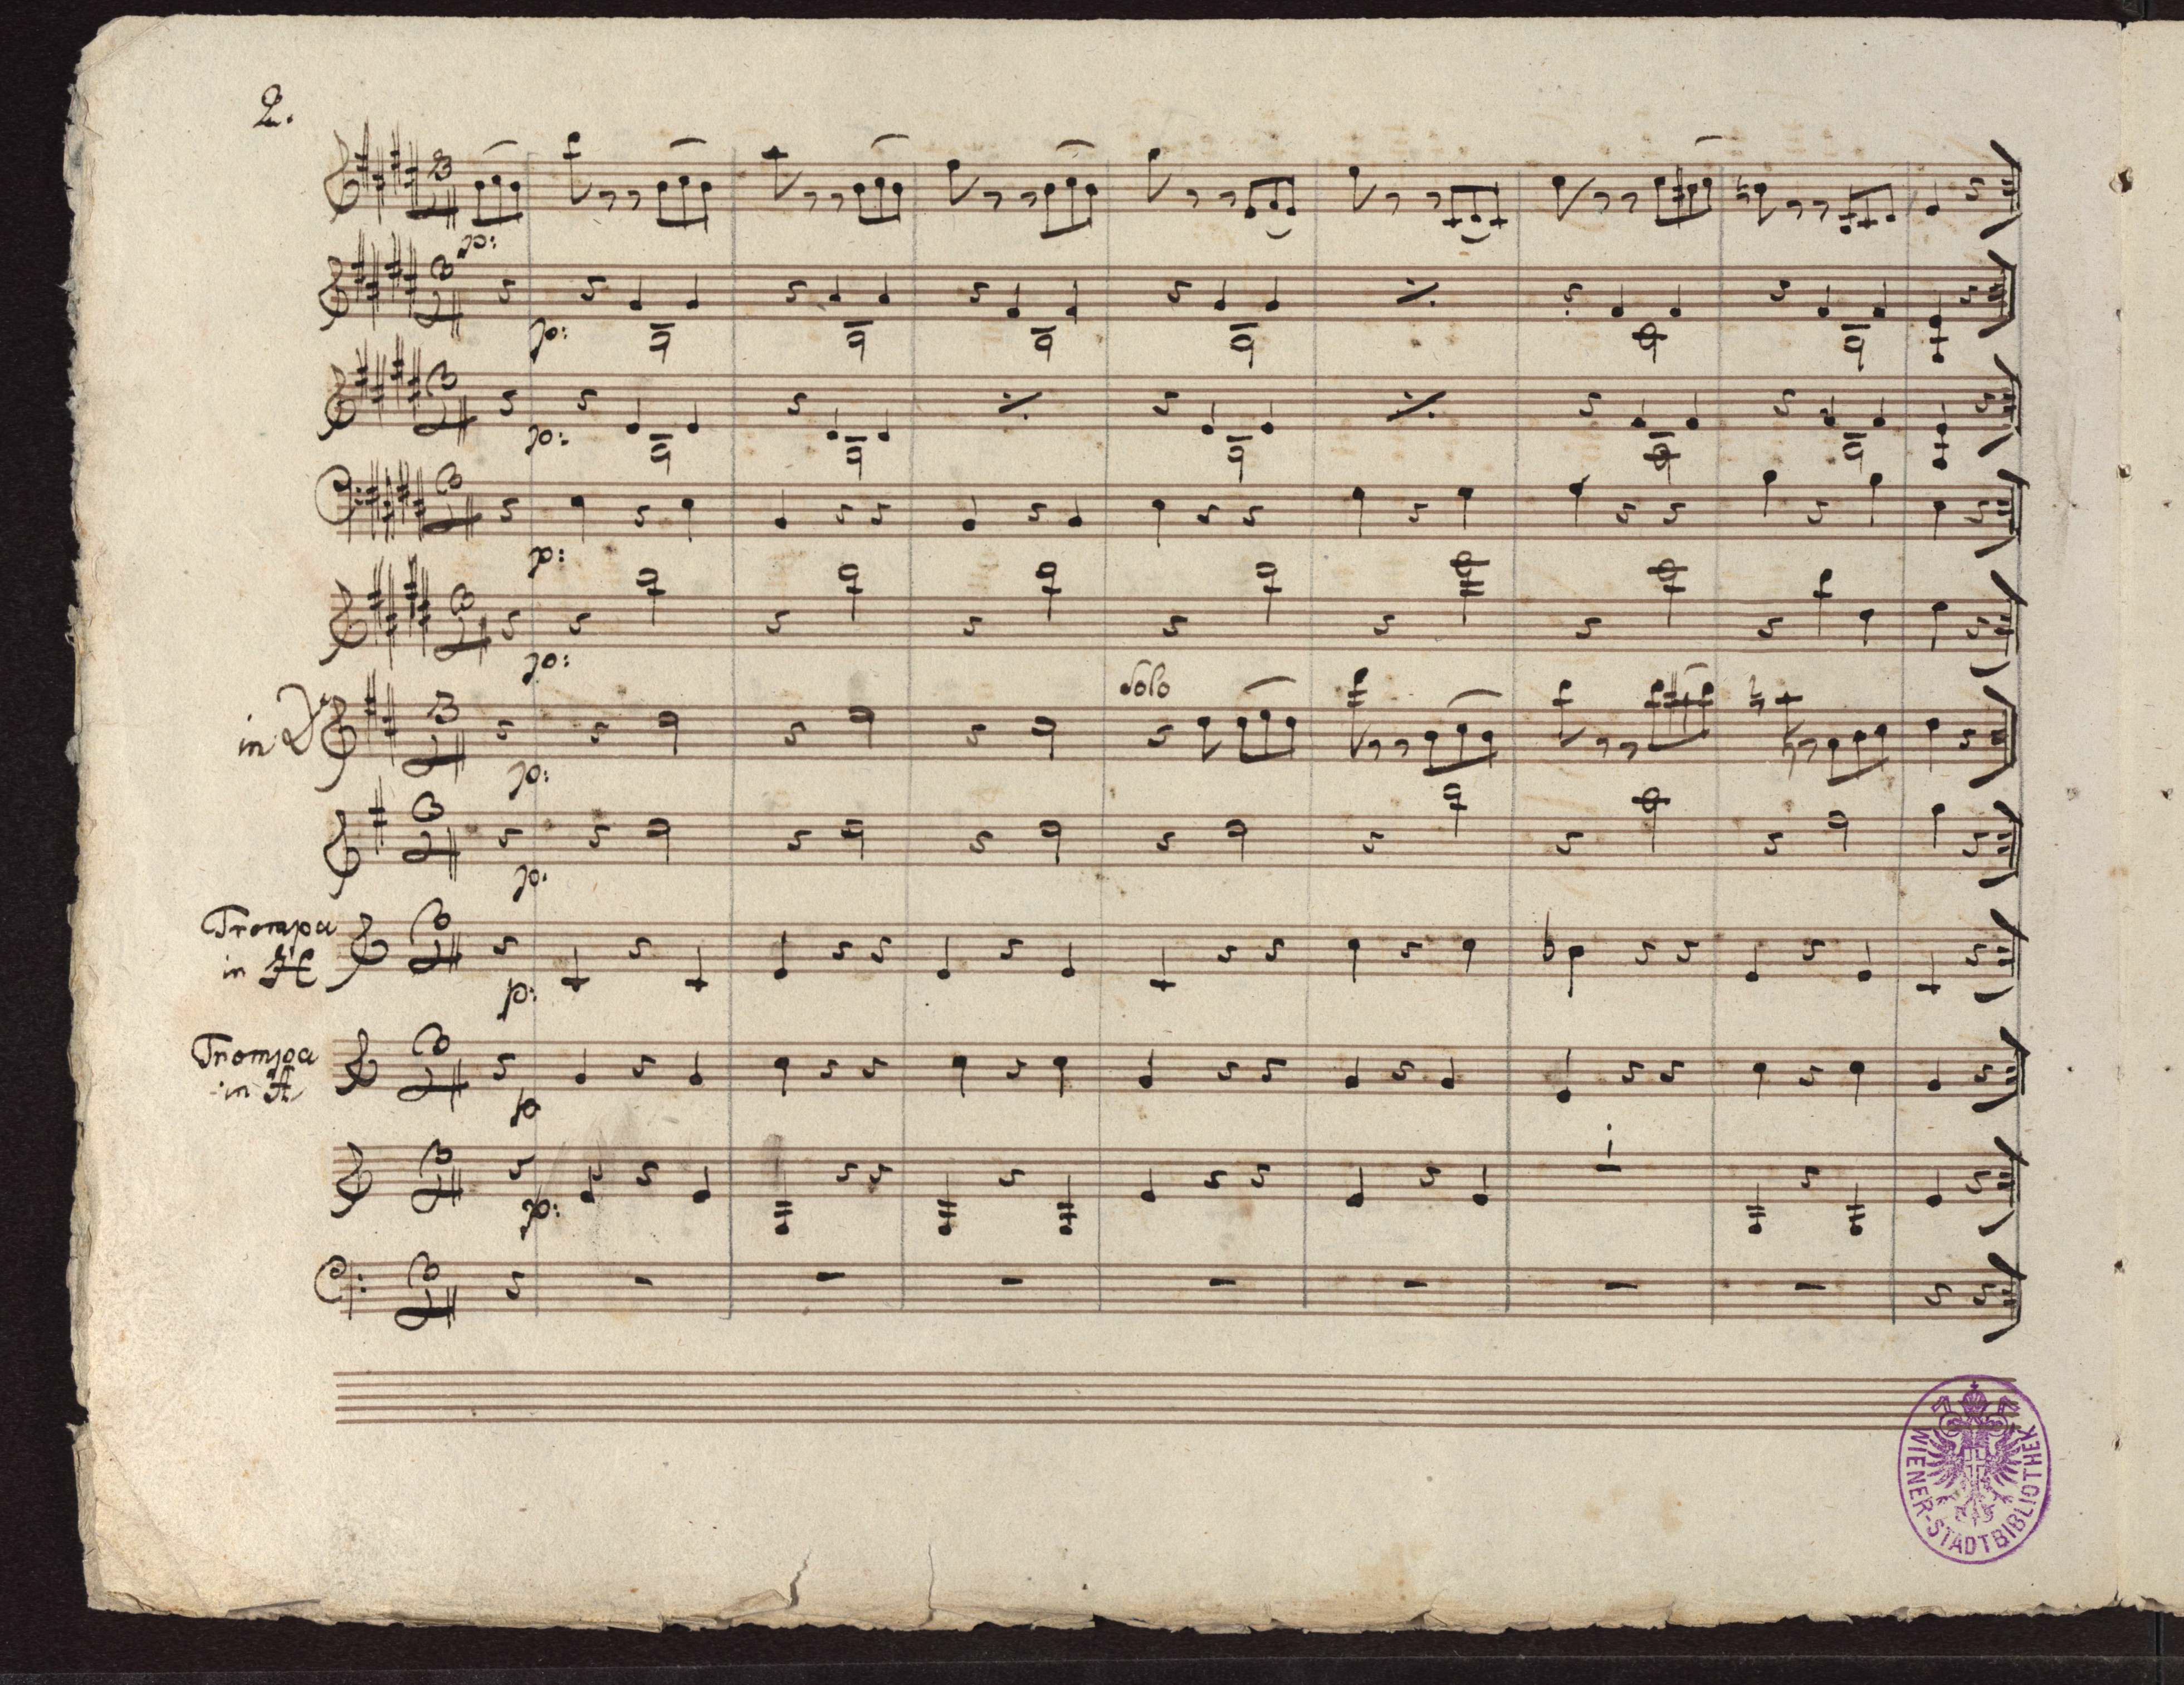 2.
p:
p:
p:
p:
p:
Solo
in D
p:
p.
Trompa
in H
p:
Trompa
in A
p
p:
WIENER-STADTBIBLIOTHEK